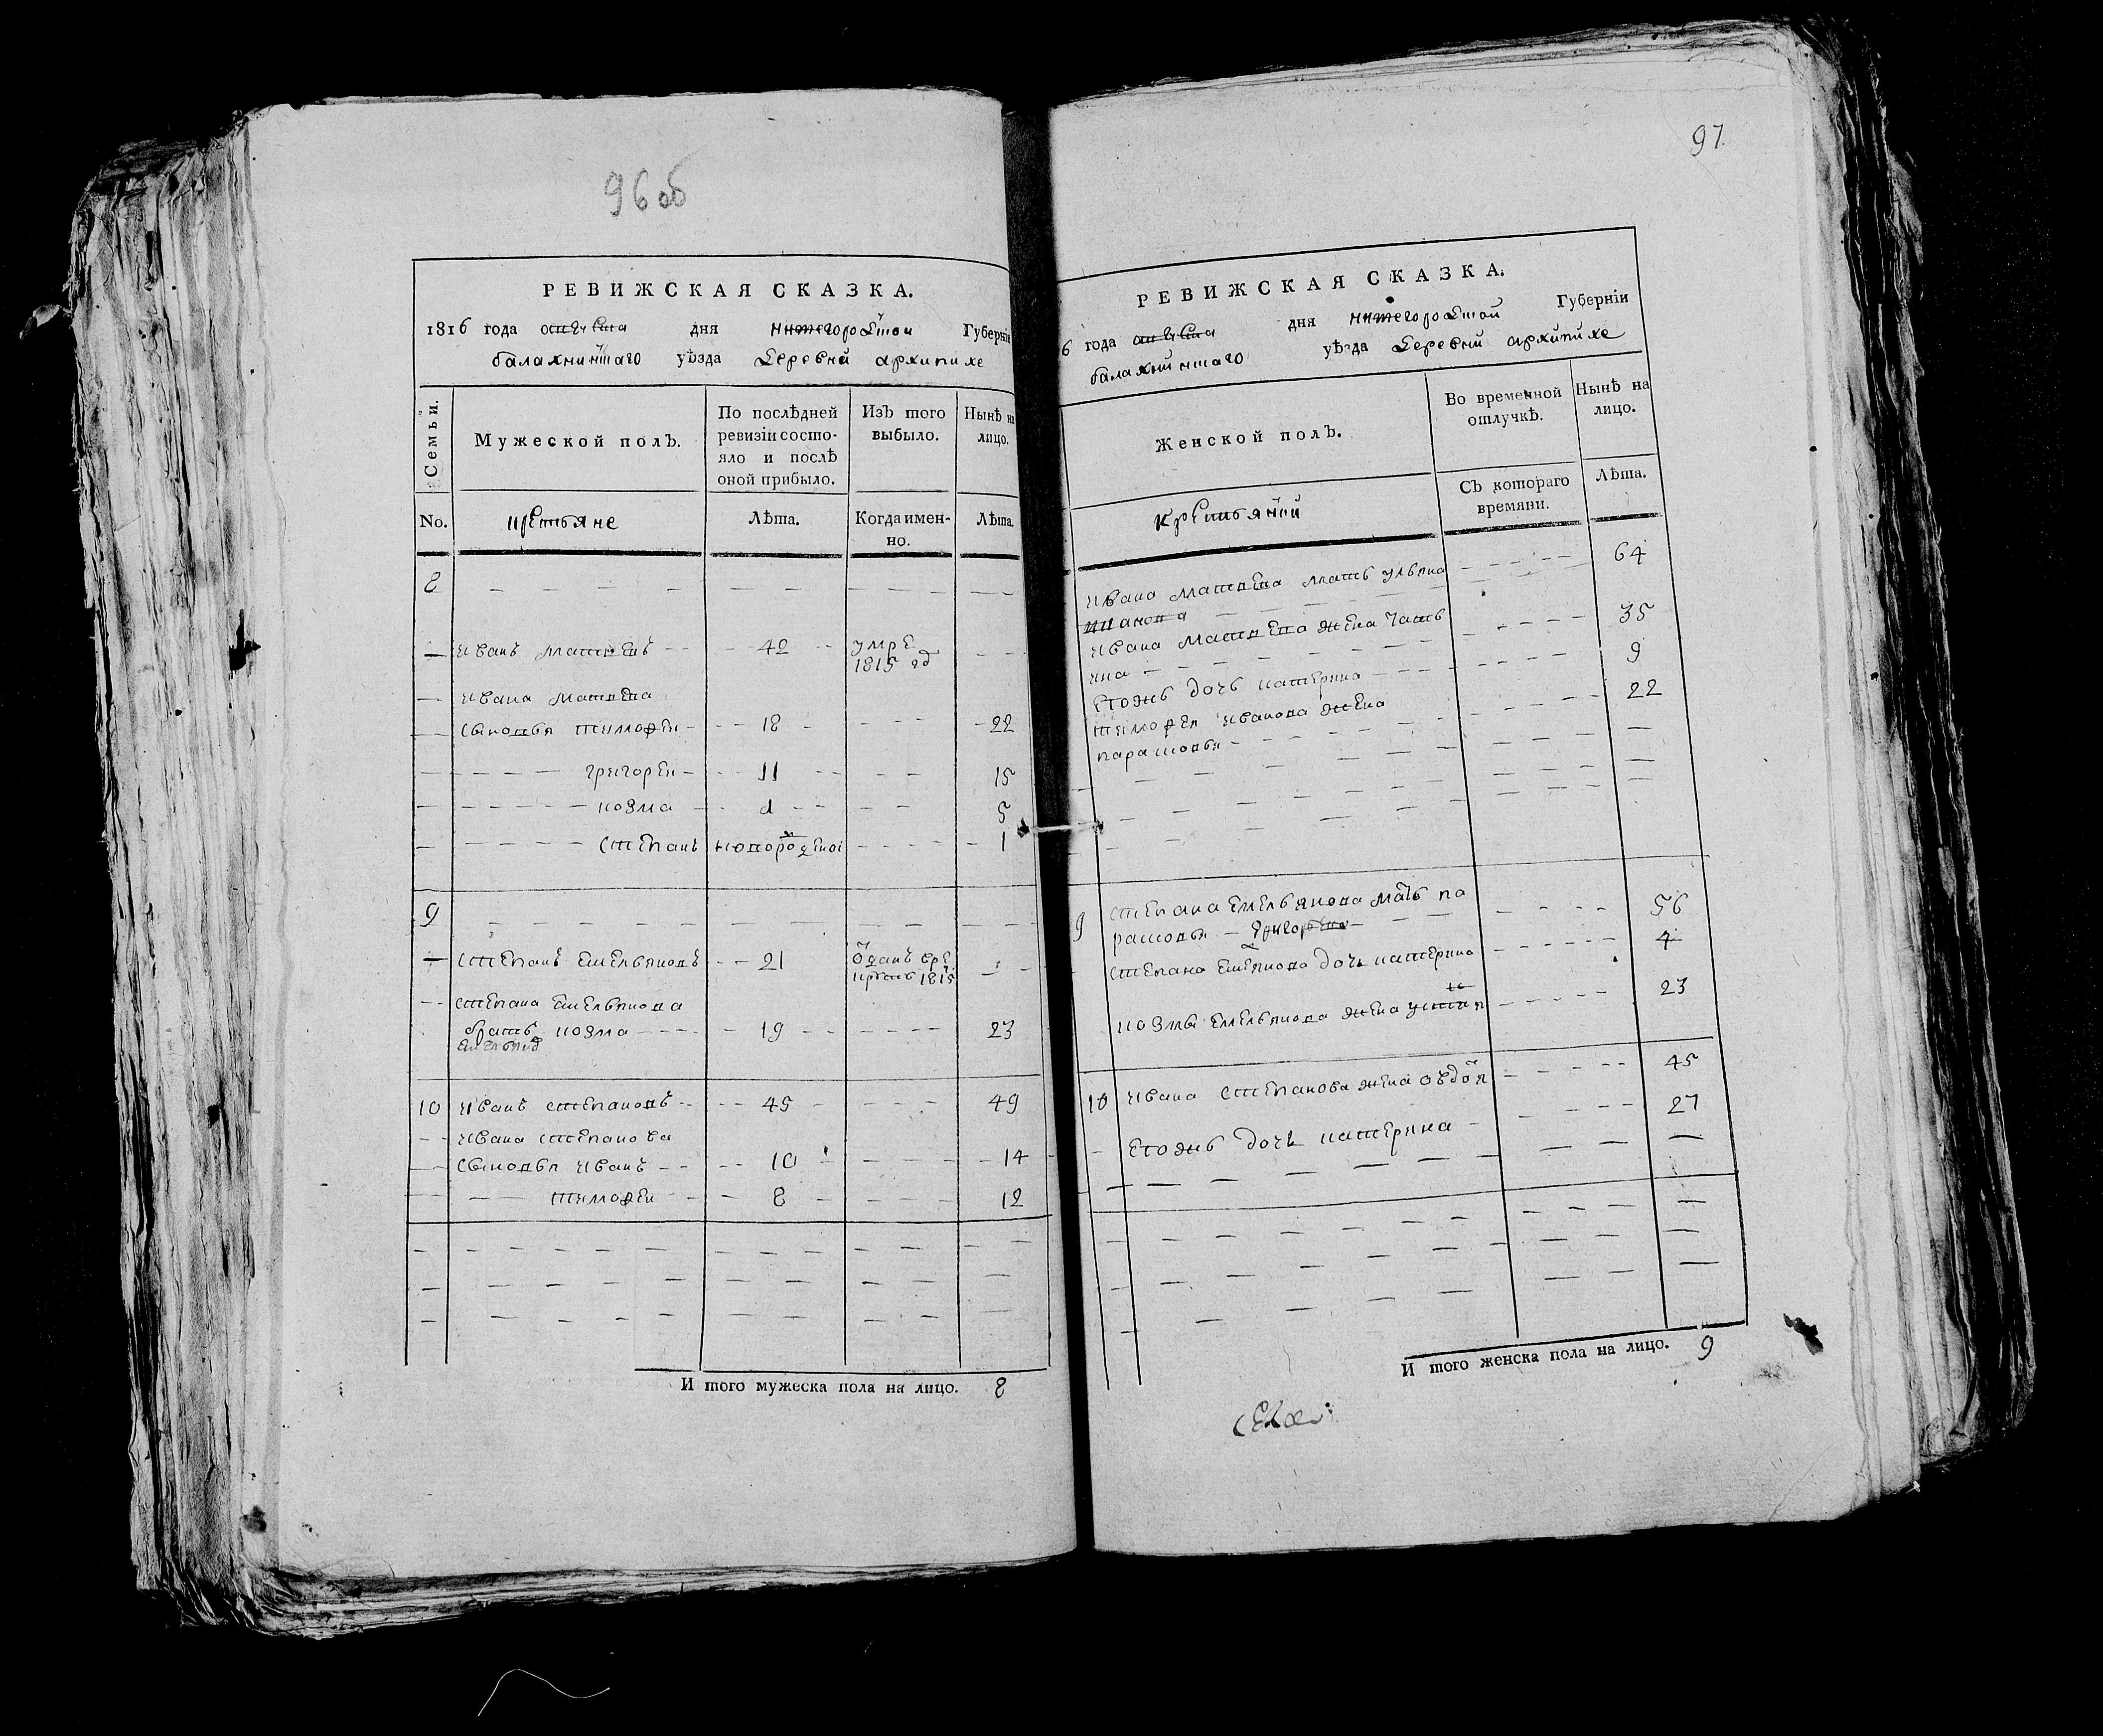 96 об
РЕВИЖСКАЯ СКАЗКА.
1816 года дня нижегородской Губернiи
балахнинскаго уѣзда деревни архипихе
Семьи. Мужеской полъ. По послѣдней ревизiи состояло и послѣ оной прибыло. Изъ того выбыло. Нынѣ на лицо.
No. крестьяне Лѣта. Когда имен-но. Лѣта.
8
Иванъ матвеевъ 42 умре 1815 год
Ивана матвеева
сыновья тимофеи 18 22
григореи 11 15
козма 1 5
степанъ новорожденои 1
9
степанъ емельяновъ 21 отданъ в рекруты 1815
степана емельянова
братъ козма 19 23
емельянов
10 Иванъ степановъ 45 49
Ивана степанова
сыновья Иванъ 10 14
тимофеи 8 12
И того мужеска пола на лицо. 8
97.
РЕВИЖСКАЯ СКАЗКА.
6 года дня нижегородской Губернiи
балахнинскаго уѣзда деревни архипихе
Женской полъ. Во временной отлучкѣ. Нынѣ на лицо.
крестьянки Съ котораго времяни. Лѣта.
Ивана матвеева мать ульяна 64
Ивана матвеева жена татьяна 35
ево жъ дочь катерина 9
тимофея Иванова жена 22
парасковья
9 степана емельянова мать па 56
расковья григорьева
степана емельянова дочь катерина 4
козмы емельянова жена устинья 23
10 Ивана степанова жена овдотья 45
ево жъ дочь катерина 27
И того женска пола на лицо. 9